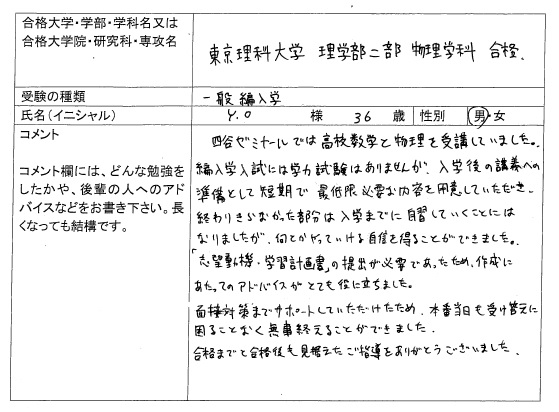 合格大学・学部・学科名又は
合格大学院・研究科・専攻名
東京理科大学 理学部二部 物理学科 合格.
受験の種類
一般編入学
氏名(イニシャル)
Y.O 様 36 歳 性別 男・女
コメント
コメント欄には、どんな勉強を
したかや、後輩の人へのアド
バイスなどをお書き下さい。長
くなっても結構です。
四谷ゼミナールでは高校数学と物理を受講していました。
編入学入試には学力試験はありませんが、入学後の講義への
準備として短期で最低限必要な内容を用意していただき、
終わりきらなかった部分は入学までに自習していくことには
なりましたが、何とかやっていける自信を得ることができました。
「志望動機・学習計画書」の提出が必要であったため、作成に
あたってのアドバイスがとても役に立ちました。
面接対策までサポートしていただけたため、本番当日も受け答えに
困ることなく無事終えることができました.
合格までと合格後も見据えたご指導をありがとうございました.